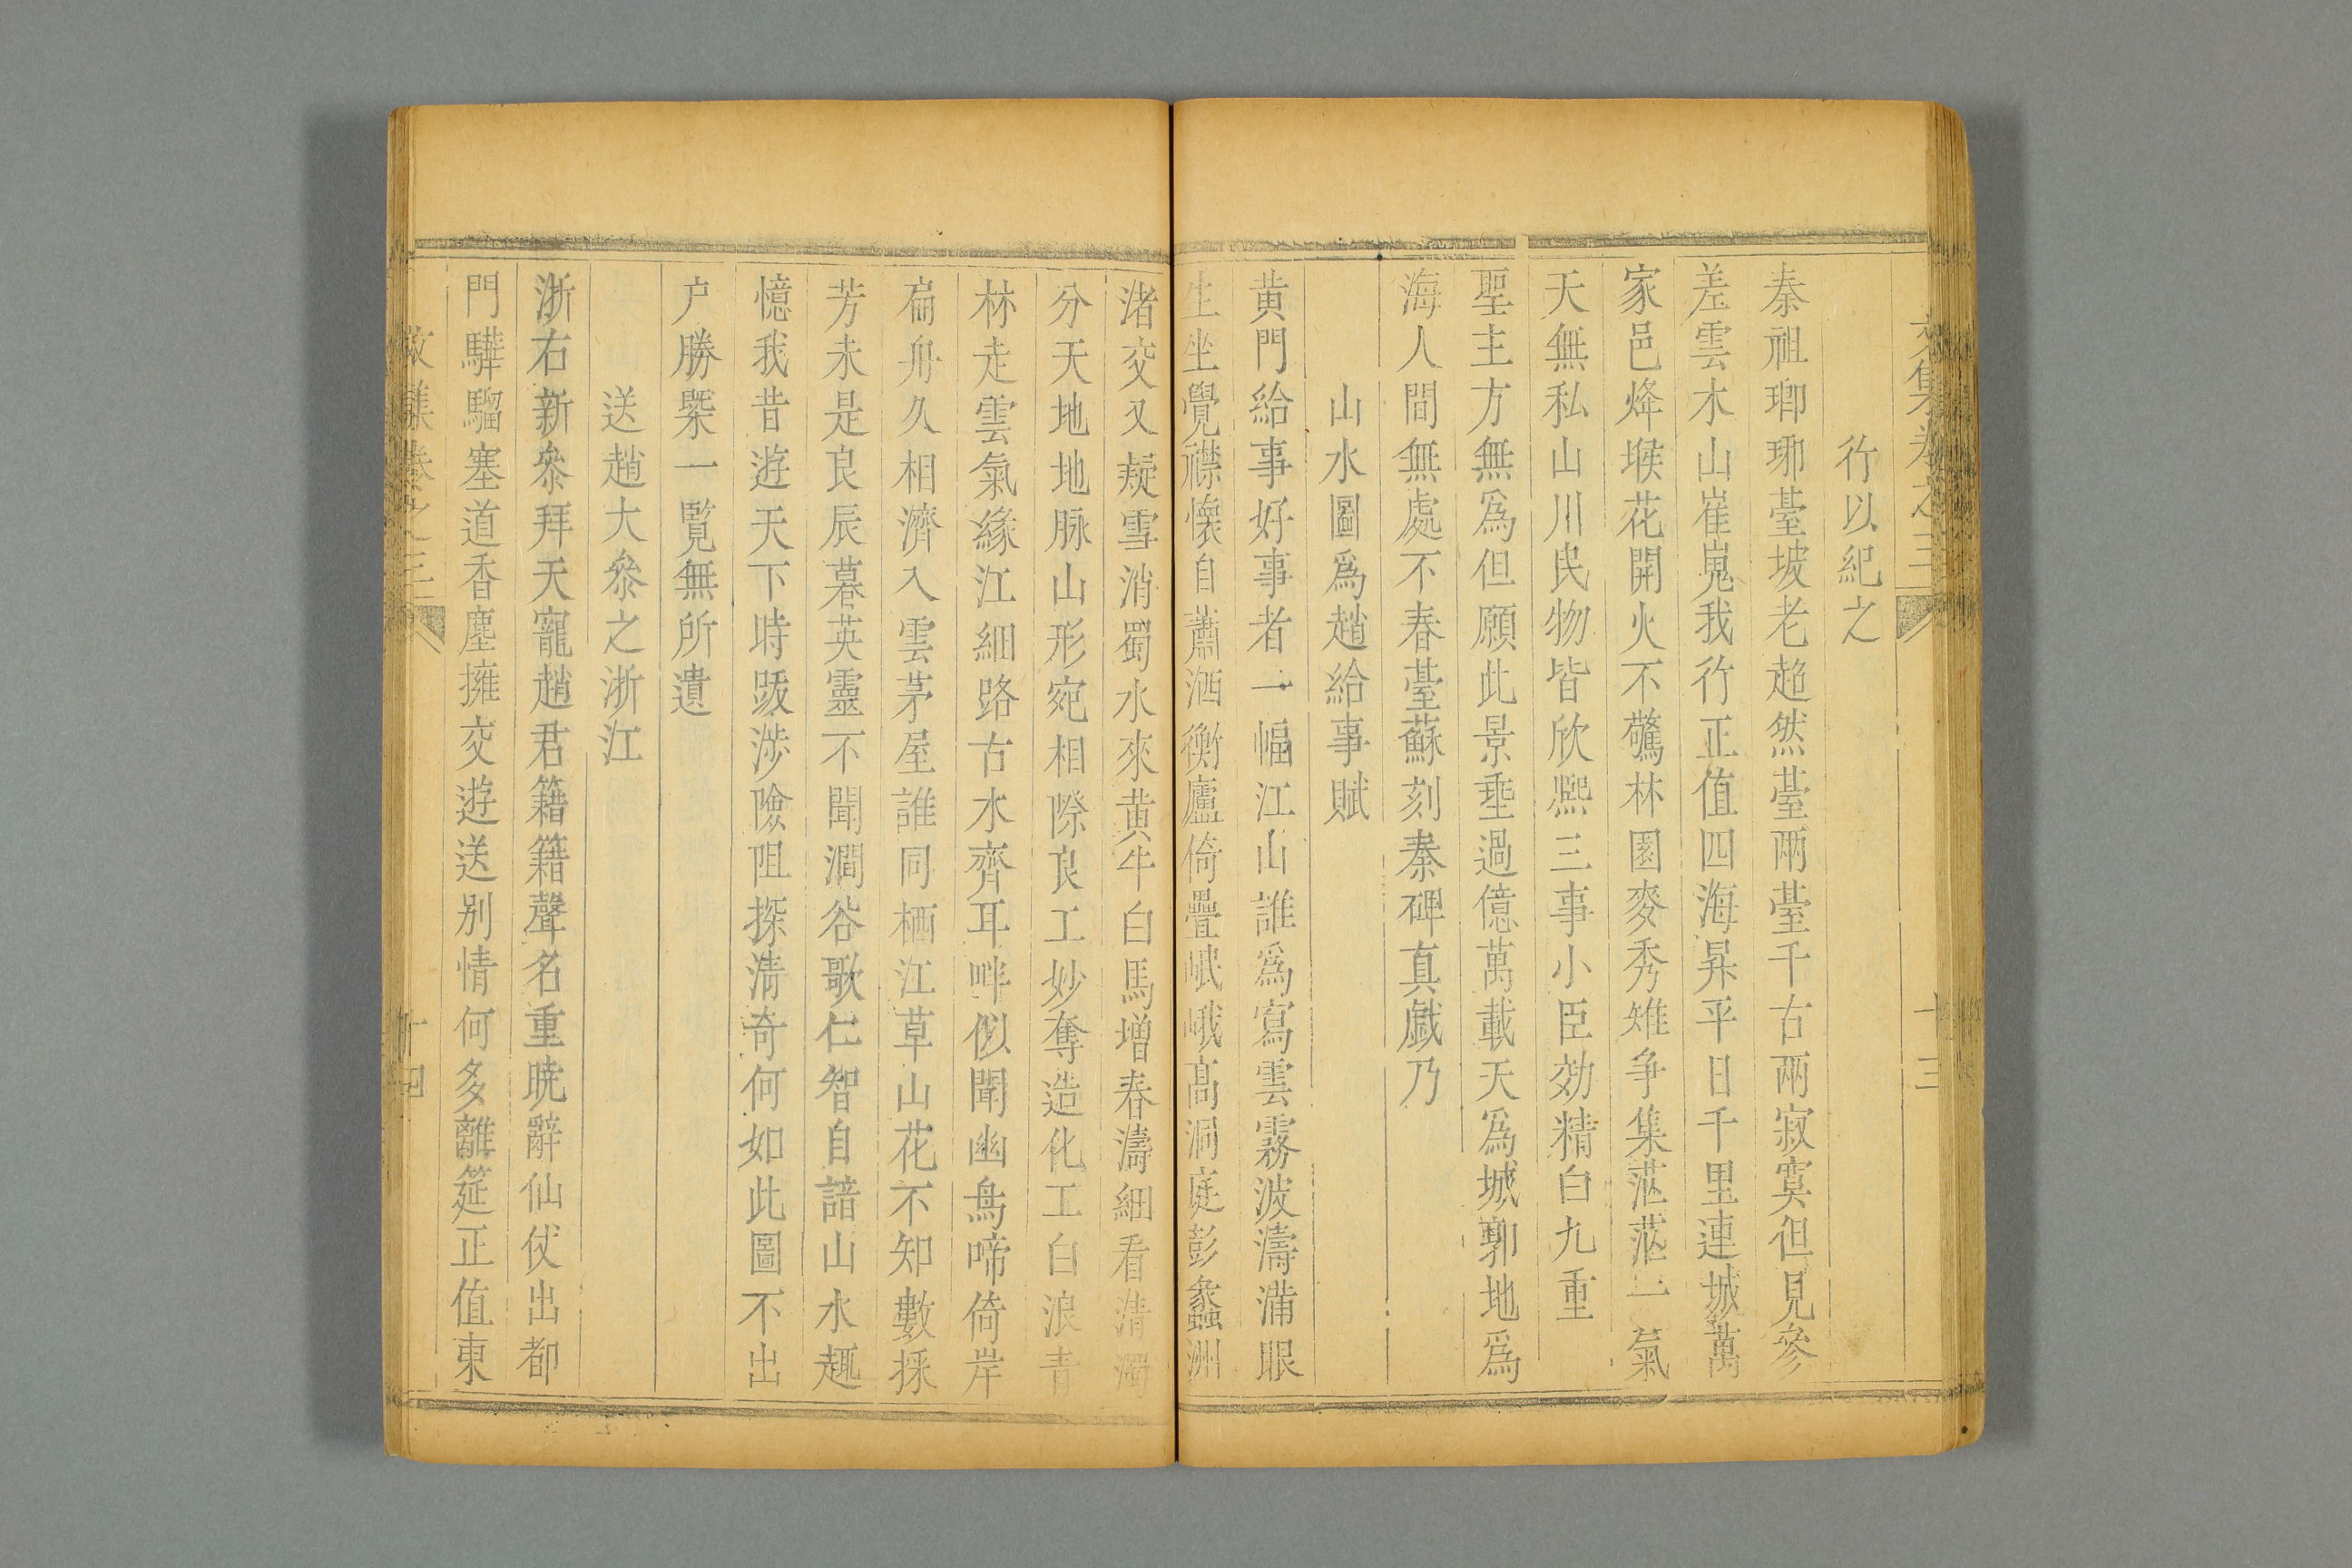 集卷之三
十三
行以紀之
秦祖瑯琊臺坡老超然臺兩臺千古兩寂寞但見參
差雲木山崔嵬我行正值四海昇平日千里連城萬
家邑烽堠花開火不驚林園麥秀雉爭集茫茫一氣
天無私山川民物皆欣熙三事小臣効精白九重
聖主方無爲但願此景垂過億萬載天爲城郭地爲
海人間無處不春臺蘇刻秦碑真戲乃
山水圖爲趙給事賦
黄門給事好事者一幅江山誰爲寫雲霧波濤滿眼
生坐覺襟懷自蕭洒衡廬倚疊岷峨高洞庭彭蠡洲
渚交又疑雪消蜀水來黄牛白馬增春濤細看清濁
分天地地脉山形宛相際良工妙奪造化工白浪青
林走雲氣緣江細路古水齊耳畔似聞幽鳥啼倚岸
扁舟久相濟入雲茅屋誰同栖江草山花不知數採
芳未是良辰暮英靈不聞澗谷歌仁智自諳山水趣
憶我昔遊天下時跋涉險阻探清奇何如此圖不出
户勝槩一覧無所遺
送趙大叅之浙江
浙右新叅拜天寵趙君籍籍聲名重曉辭仙仗出都
門驊騮塞道香塵擁交遊送别情何多離筵正值東
集卷之三
十四